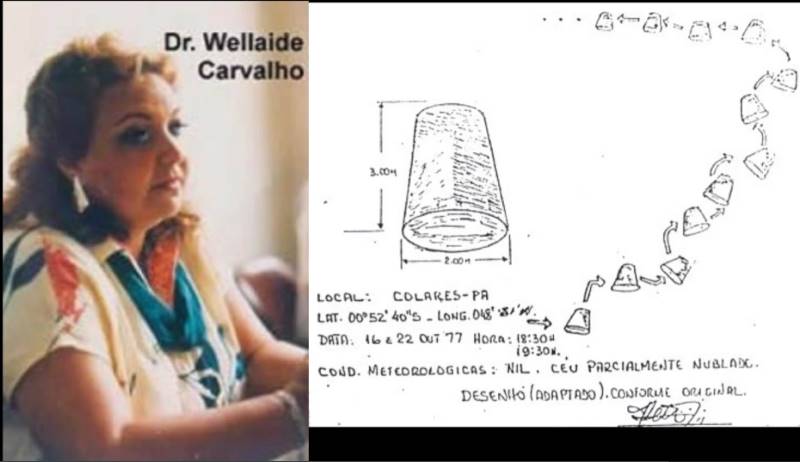 Dr. Wellaide
Carvalho
3.00M
2.00M
LOCAL: COLARES-PA
LAT. 00°52' 40"S - LONG. 048°
DATA: 16 e 22 OUT 77 HORA: 18:30H
19:30H.
COND. METEOROLOGICAS: NIL. CEU PARCIALMENTE NUBLADO.
DESENHO (ADAPTADO). CONFORME ORIGINAL.